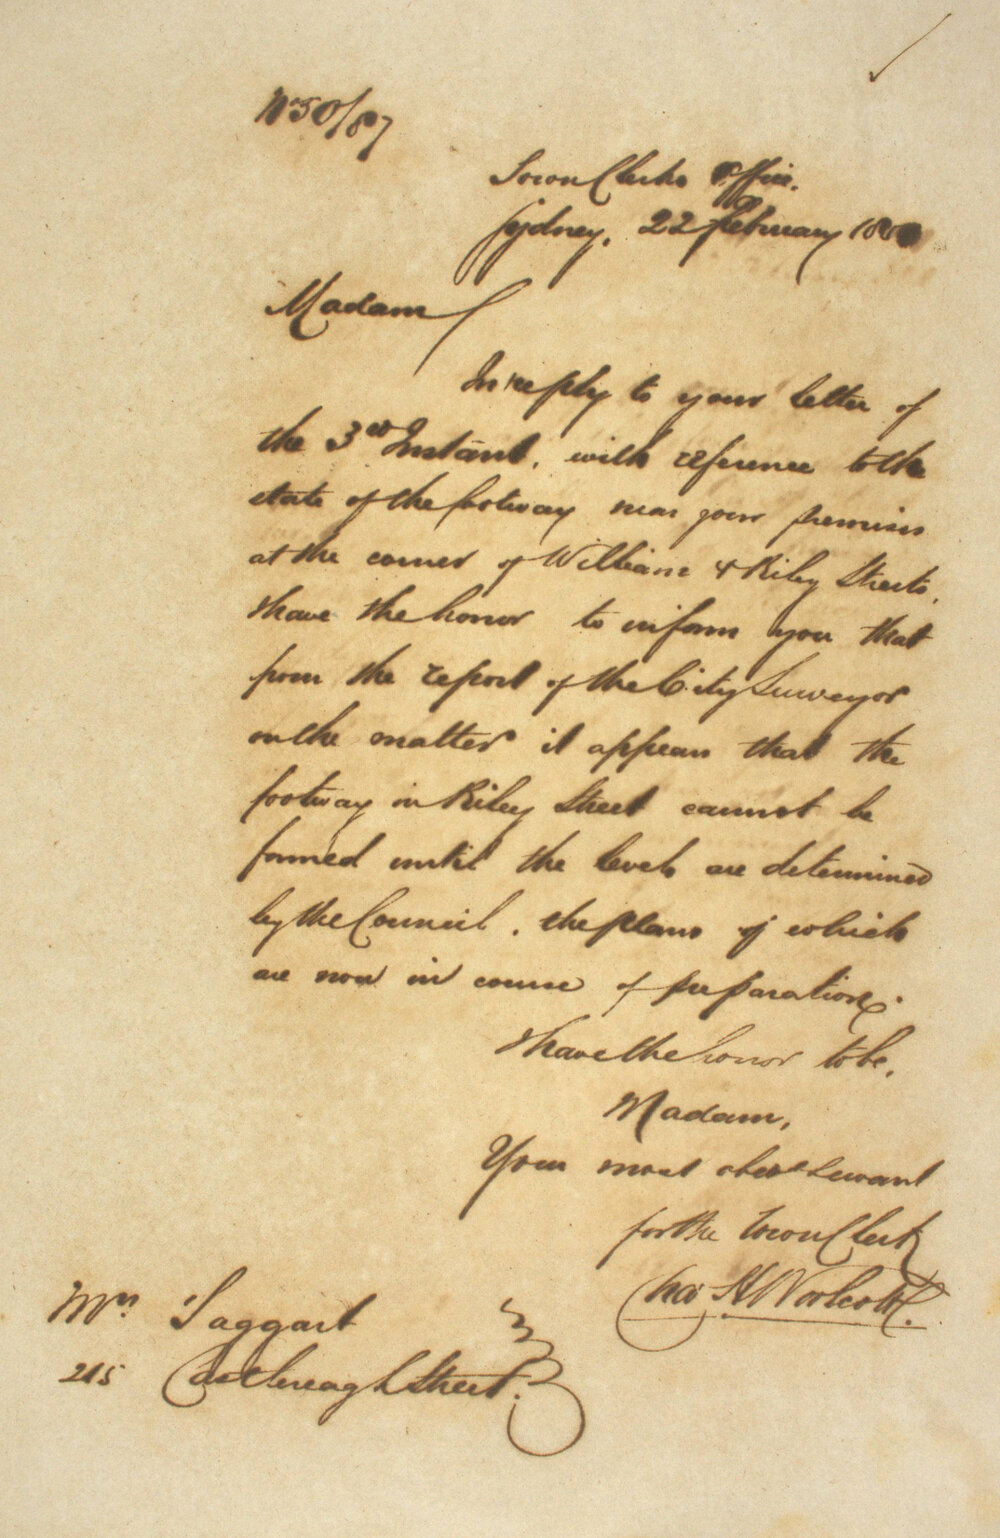 No 50/87
Town Clerks Office.
Sydney, 22 February
Madam
In reply to your letter of
the 3rd Instant, with reference to the
state of the footway near your premises
at the corner of William & Riley Streets,
I have the honor to inform you that
from the report of the City Surveyor
on the matter it appears that the
footway in Riley Street cannot be
formed until the levels are determined
by the Council, the plans of which
are now in course of preparation.
I have the honor to be,
Madam,
Your most obedt Servant
for the Town Clerk
Chas H Woolcott.
Mrs Taggart
215 Castlereagh Street.